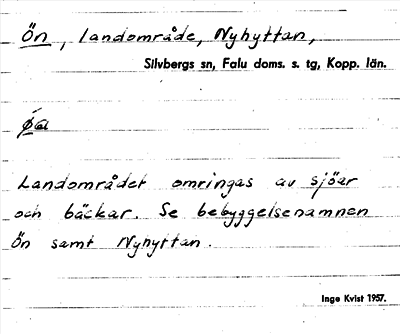 Ön, landområde, Nyhyttan,
Silvbergs sn, Falu doms. s. tg, Kopp. län.
Landområdet omringas av sjöar
och bäckar. Se bebyggelsenamnen
Ön samt Nyhyttan.
Inge Kvist 1957.